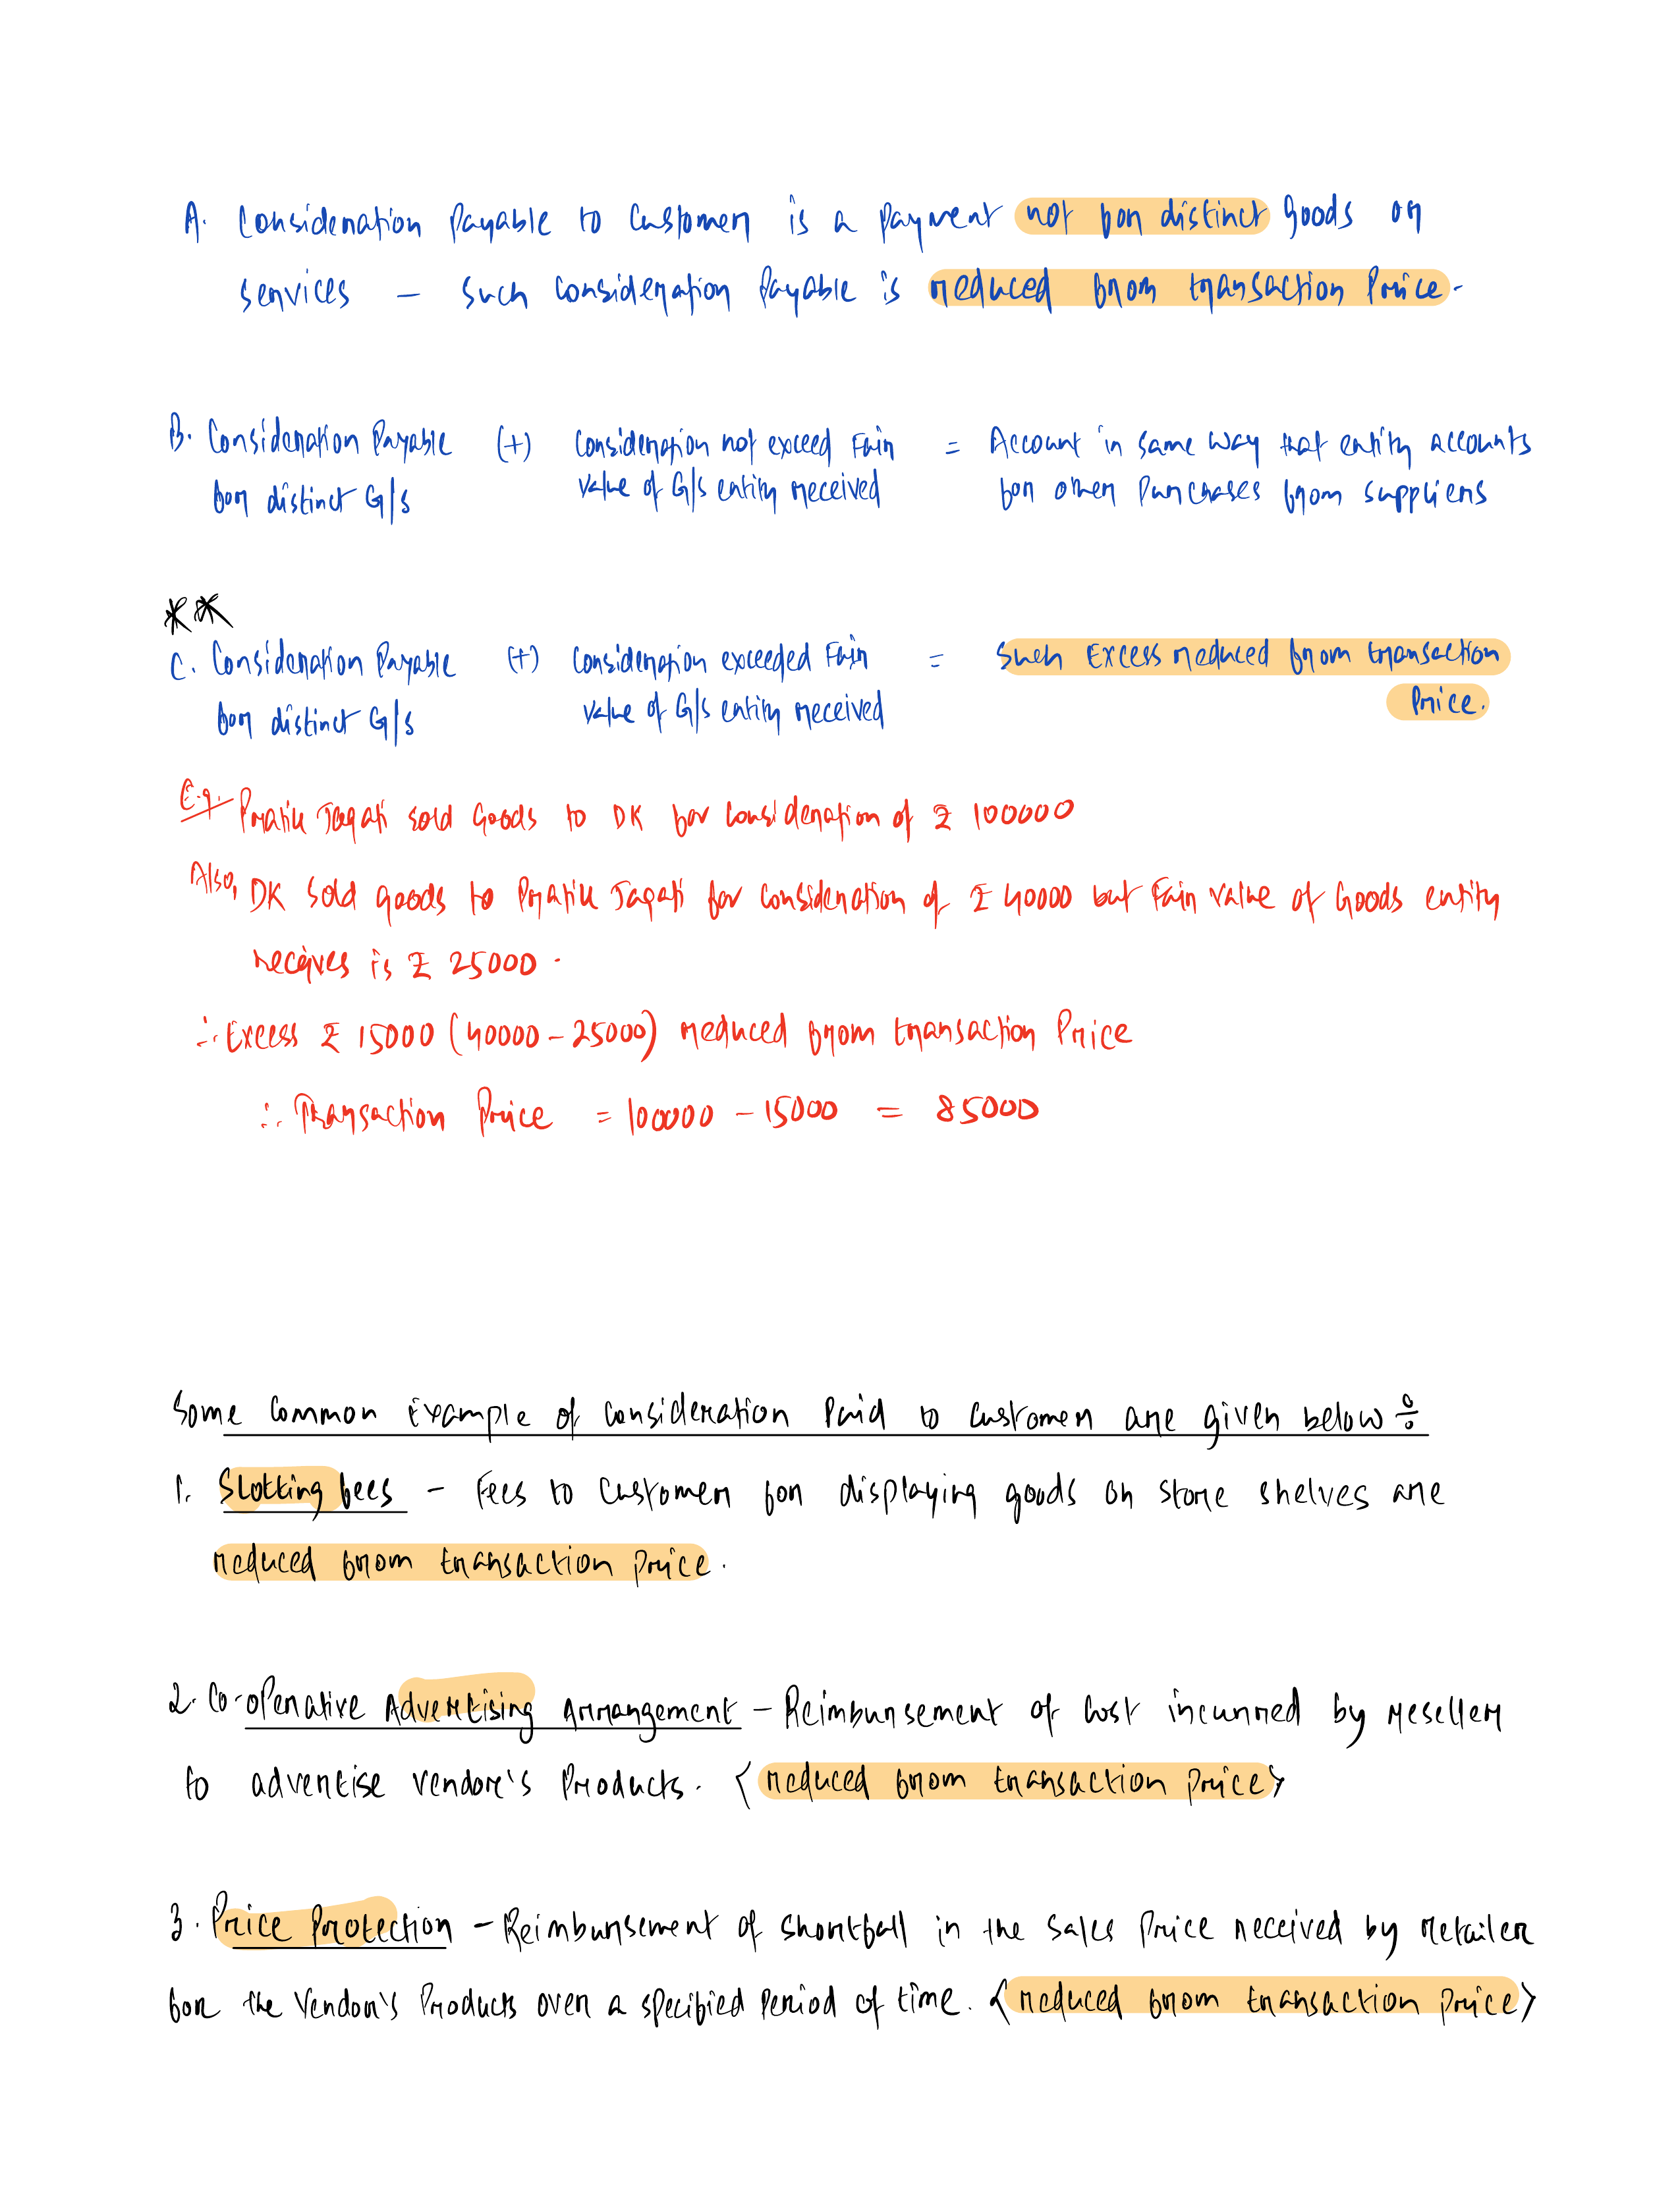 A. Consideration Payable to Customer is a payment not for distinct Goods or
services – such consideration Payable is reduced from transaction Price.
B. Consideration Payable (+) Consideration not exceed Fair = Account in same way that entity accounts
for distinct G/s value of G/s entity received for other Purchases from suppliers
**
C. Consideration Payable (+) Consideration exceeded Fair = Such Excess reduced from transaction
for distinct G/s value of G/s entity received Price.
E.g. Pratik Jagati sold Goods to DK for consideration of ₹ 100000
Also, DK sold goods to Pratik Jagati for consideration of ₹ 40000 but Fair value of Goods entity
receives is ₹ 25000.
∴ Excess ₹ 15000 (40000 – 25000) reduced from transaction Price
∴ Transaction Price = 100000 – 15000 = 85000
Some Common Example of consideration Paid to Customer are given below ÷
1. Slotting fees – Fees to Customer for displaying goods on store shelves are
reduced from transaction price.
2. Co-operative Advertising Arrangement – Reimbursement of Cost incurred by reseller
to advertise vendor's Products. <reduced from transaction price>
3. Price Protection – Reimbursement of shortfall in the sales Price received by retailer
for the Vendor's Products over a specified Period of time. <reduced from transaction price>